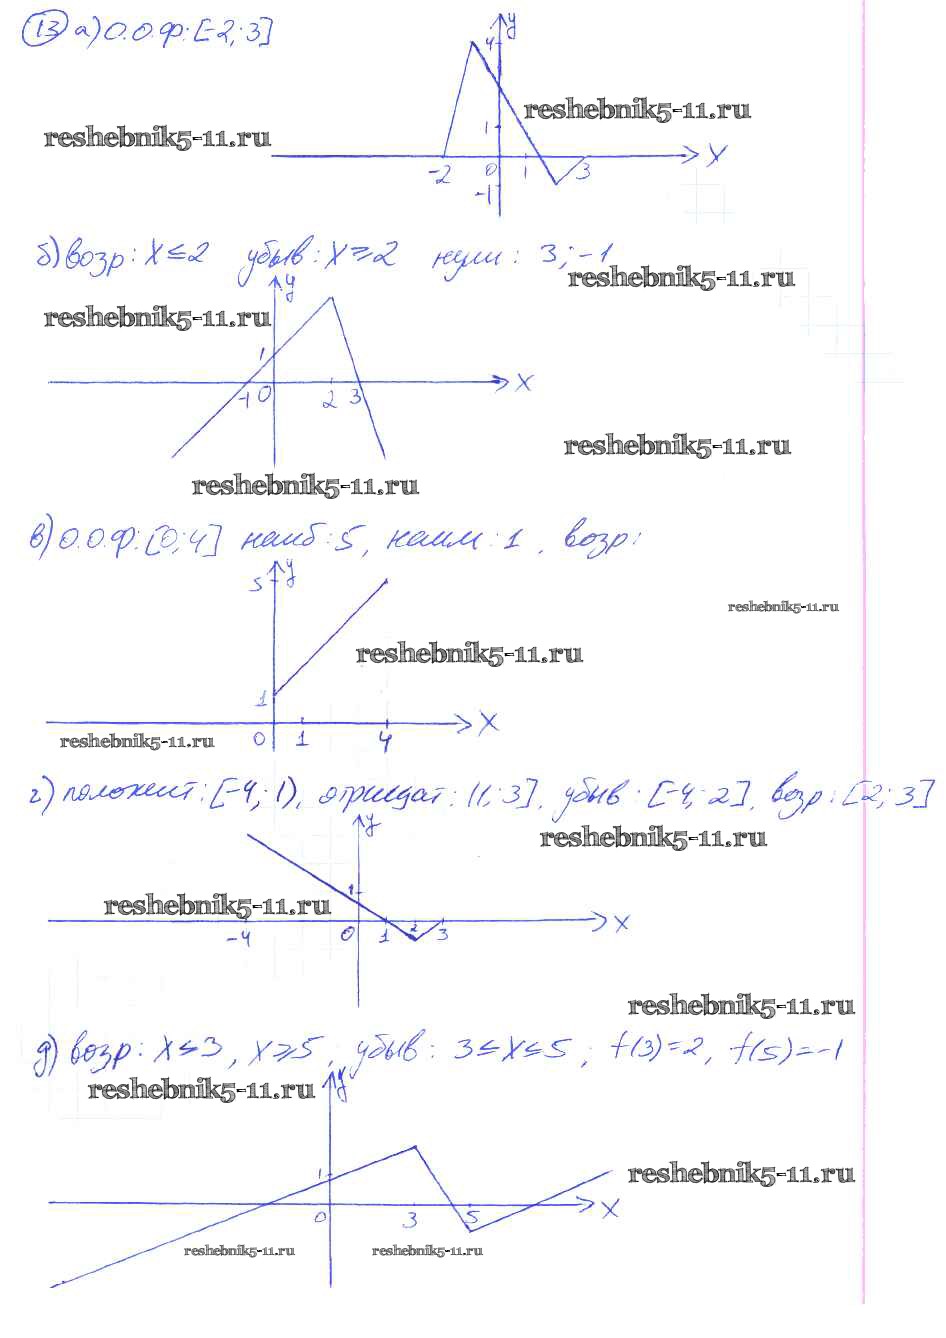 13 а) О.О.Ф: [-2; 3]
y
4
reshebnik5-11.ru
1
reshebnik5-11.ru
X
-2 0 1 3
-1
б) возр: X ≤ 2 убыв: X ≥ 2 нули: 3; -1
reshebnik5-11.ru
y
reshebnik5-11.ru
1
X
-1 0 2 3
reshebnik5-11.ru
reshebnik5-11.ru
в) О.О.Ф: [0; 4] наиб: 5, наим: 1, возр:
y
5
reshebnik5-11.ru
reshebnik5-11.ru
1
X
reshebnik5-11.ru
0 1 4
г) положит: [-4; 1), отрицат: (1; 3], убыв: [-4; 2], возр: [2; 3]
y
reshebnik5-11.ru
1
reshebnik5-11.ru
X
-4 0 1 2 3
reshebnik5-11.ru
д) возр: X ≤ 3, X ≥ 5; убыв: 3 ≤ X ≤ 5; f(3) = 2, f(5) = -1
y
reshebnik5-11.ru
1
reshebnik5-11.ru
X
0 3 5
reshebnik5-11.ru reshebnik5-11.ru